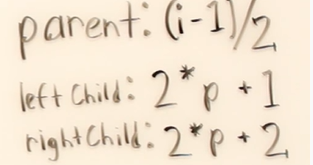 parent: (i-1)/2
left child: 2*p + 1
right child: 2*p + 2